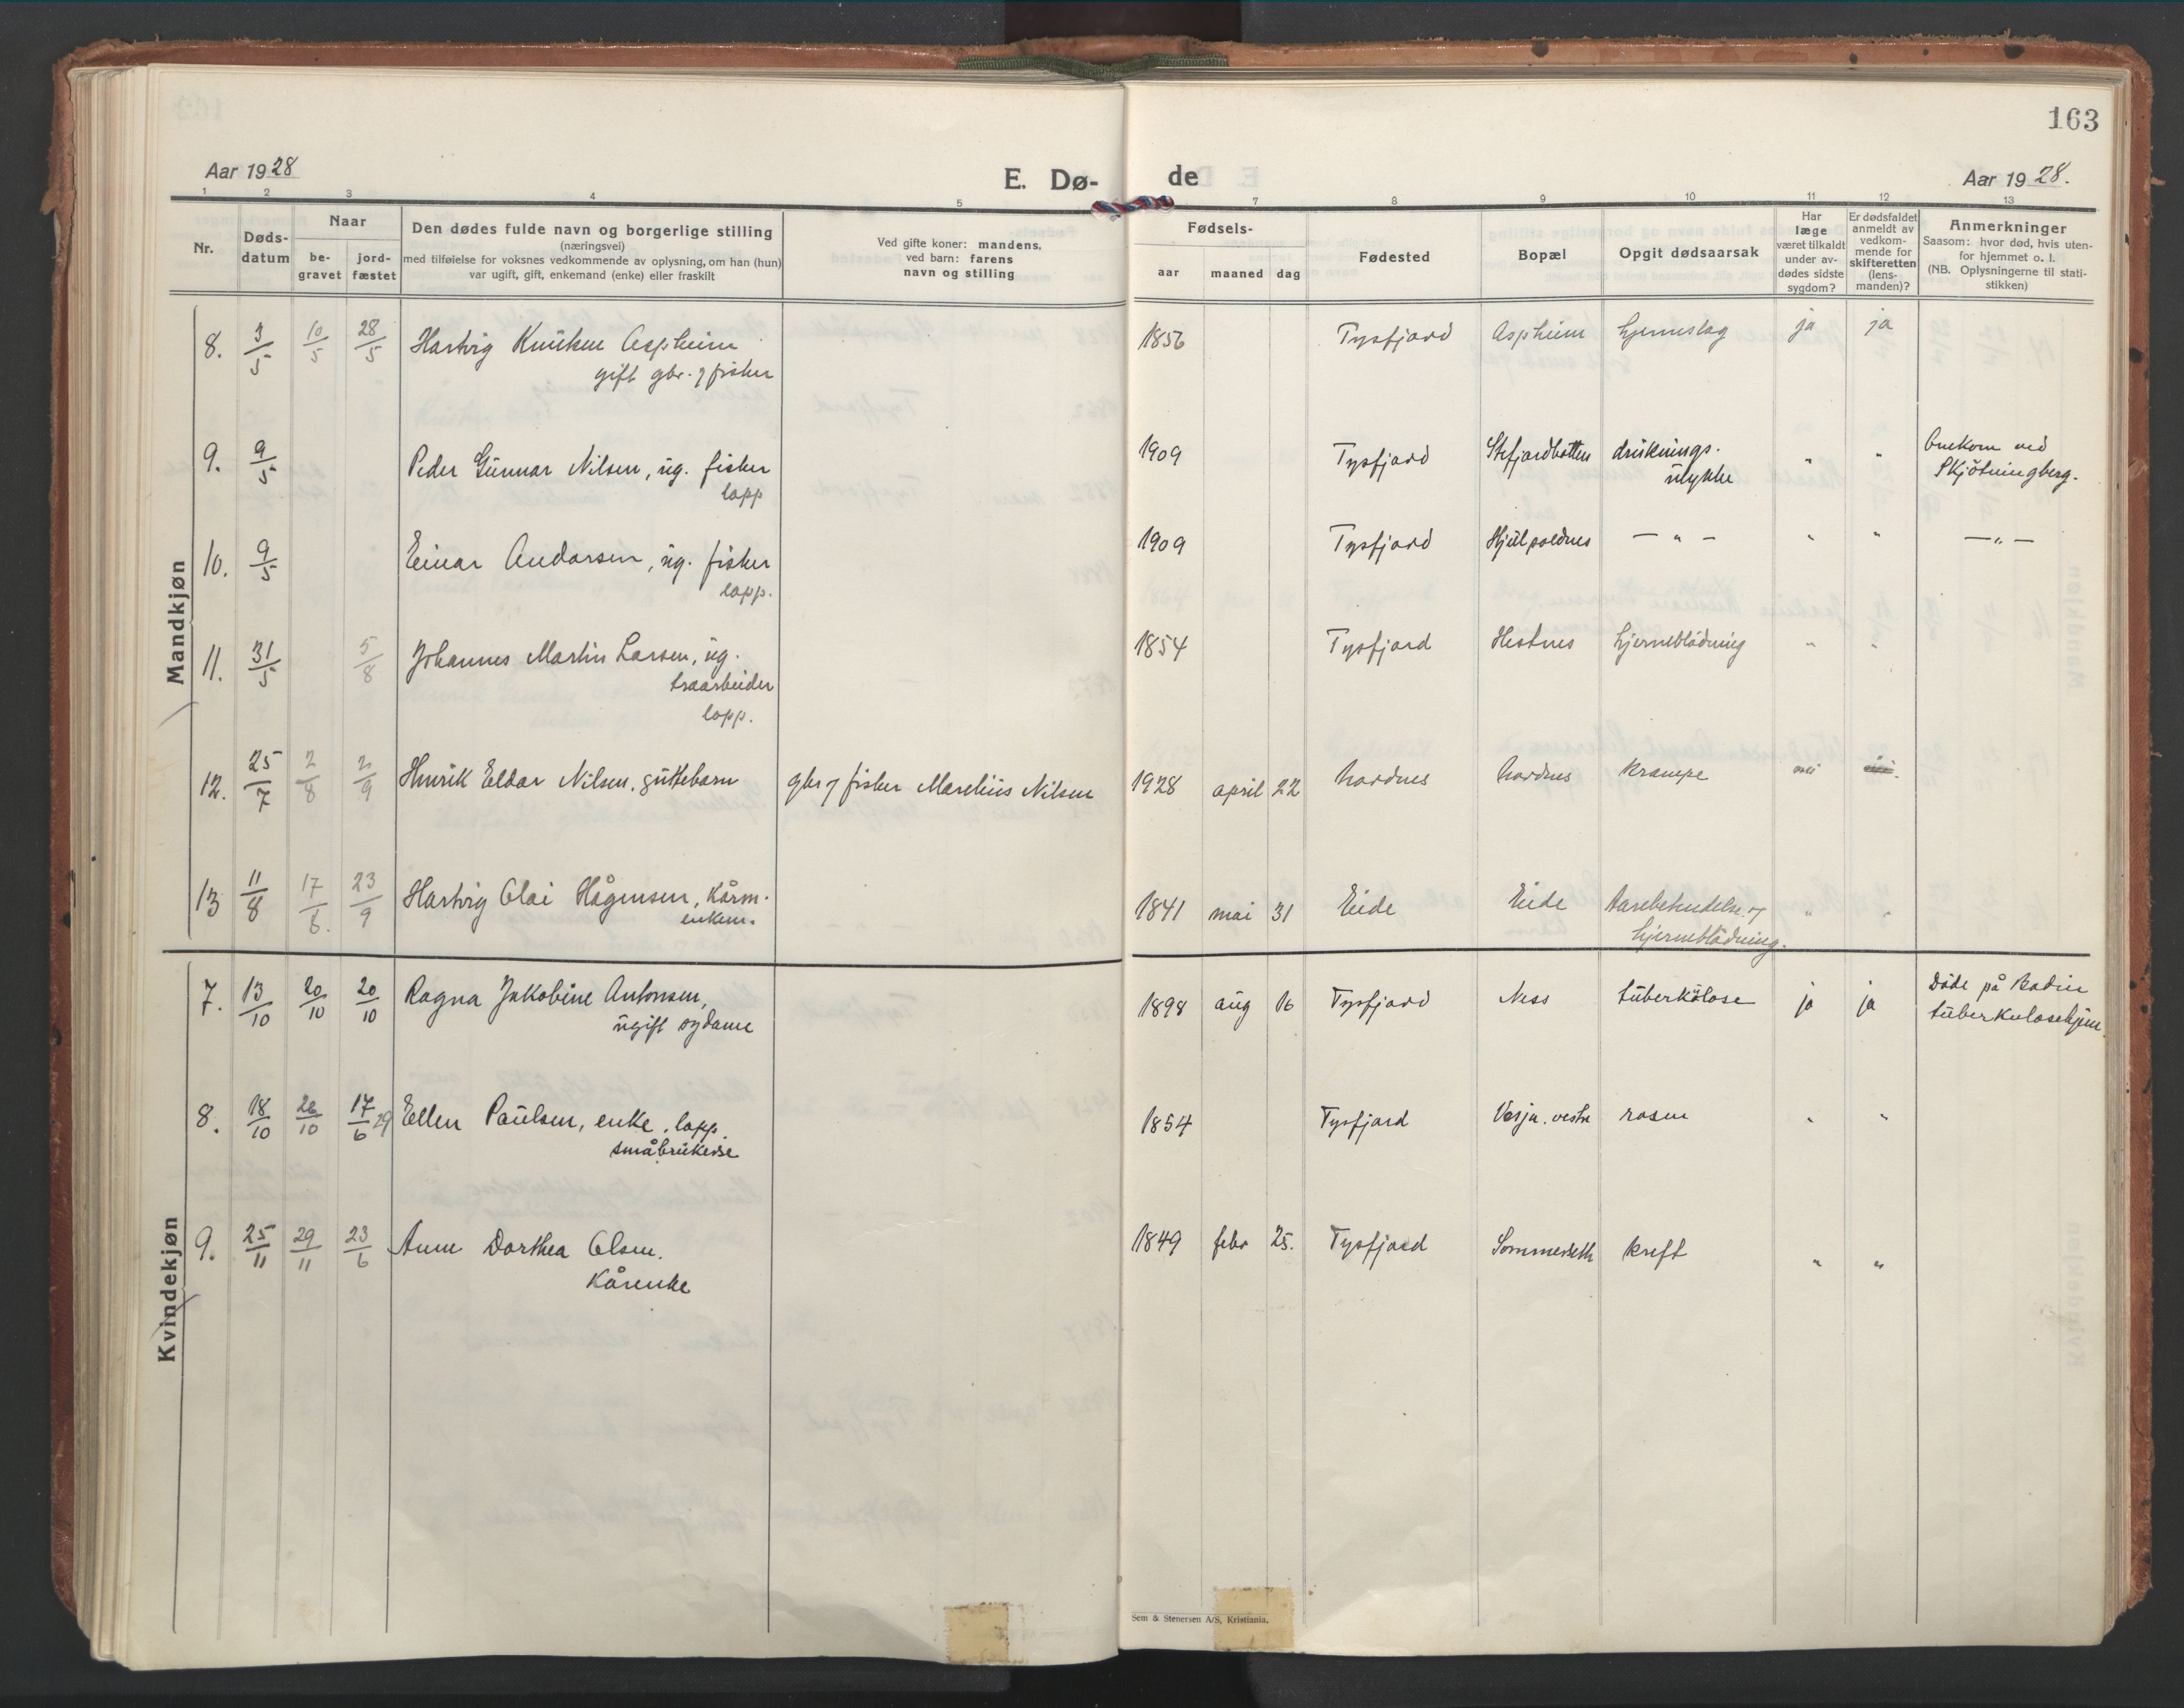 163
Aar 1928
E. Dø-
de
Aar 1928.
1 2 3 4 5 7 8 9 10 11 12 13
Nr.
Døds-
datum
Naar
be-
gravet
jord-
fæstet
Den dødes fulde navn og borgerlige stilling
(næringsvei)
med tilføielse for voksnes vedkommende av oplysning, om han (hun)
var ugift, gift, enkemand (enke) eller fraskilt
Ved gifte koner: mandens,
ved barn: farens
navn og stilling
Fødsels-
aar maaned dag
Fødested
Bopæl
Opgit dødsaarsak
Har
læge
været tilkaldt
under av-
dødes sidste
sygdom?
Er dødsfaldet
anmeldt av
vedkom-
mende for
skifteretten
(lens-
manden)?
Anmerkninger
Saasom: hvor død, hvis uten-
for hjemmet o. l.
(NB. Oplysningerne til stati-
stikken)
Mandkjøn
8. 3/5 10/5 28/5 Hartvig Knutsen Aspheim 1856 Tysfjord Aspheim hjerneslag ja ja
gift gbr. & fisker
9. 9/5 Peder Gunnar Nilsen, ug. fisker 1909 Tysfjord Stefjordbotten druknings- " " Omkom ved
lapp ulykke Skjötningberg.
10. 9/5 Einar Andersen, ug. fisker 1909 Tysfjord — " — " " — " —
lapp.
11. 31/5 5/8 Johannes Martin Larsen, ug. 1854 Tysfjord Hestnes hjerneblödning " "
traarbeider
lapp.
12. 25/7 2/8 2/9 Henrik Eldar Nilsen, guttebarn gbr & fisker Marelius Nilsen 1928 april 22 Korsnes Korsnes krampe nei
13 11/8 17/8. 23/9 Hartvig Olai Hågensen, kårm. 1841 mai 31 Eide Eide & " "
enkem. hjerneblödning.
Kvindekjøn
7. 13/10 20/10 20/10 Ragna Jakobine Antonsen, 1898 aug 16 Tysfjord Ness tuberkulose ja ja Döde på Bodin
ugift sydame tuberkulosehjem.
8. 18/10 26/10 17/6 29 Ellen Paulsen, enke, lapp. 1854 Tysfjord rosen " "
småbrukerse
9. 25/11 29/11 23/6 Anne Dorthea Olsen. 1849 febr 25. Tysfjord Sommerseth kreft " "
Kårenke
Sem & Stenersen A/S, Kristiania.